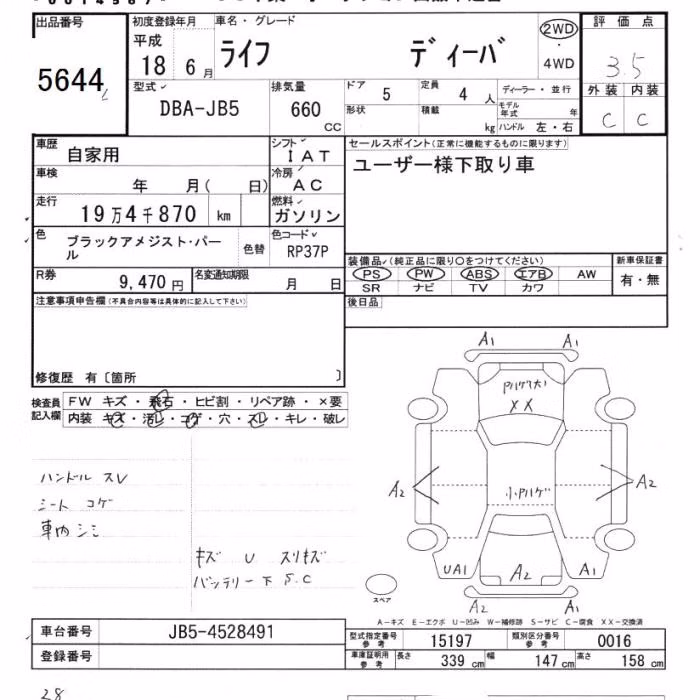 出品番号
5644
初度登録年月
平成
18 6 月
車名・グレード
ライフ ディーバ
2WD
・
4WD
評価点
3.5
外装 内装
C C
型式
DBA-JB5
排気量
660
CC
ドア
5
定員
4 人
形状
積載
kg
ディーラー・並行
モデル年式 年
ハンドル 左・右
車歴
自家用
シフト
IAT
車検
年 月( 日)
冷房
AC
走行
19万4千870 km
燃料
ガソリン
色
ブラックアメジスト・パール
色替
色コード
RP37P
R券
9,470 円
名変通知期限
月 日
セールスポイント(正常に機能するものに限ります)
ユーザー様下取り車
装備品(純正品に限り○をつけてください)
PS PW ABS エアB AW
SR ナビ TV カワ
新車保証書
有・無
後日品
注意事項申告欄(不具合内容等は具体的に記入して下さい)
修復歴 有〔箇所 〕
検査員
記入欄
FW キズ・飛石・ヒビ割・リペア跡・×要
内装 キズ・汚レ・コゲ・穴・スレ・キレ・破レ
ハンドル スレ
シート コゲ
車内 シミ
キズ U スリキズ
バッテリー下 S.C
A1 A1
XX
A2
小ハゲ
A2
UA1
A2
A1
A2 A1
スペア
A-キズ E-エクボ U-凹み W-補修跡 S-サビ C-腐食 XX-交換済
車台番号
JB5-4528491
登録番号
型式指定番号
参考
15197
類別区分番号
参考
0016
車庫証明用
参考
長さ
339 cm
幅
147 cm
高さ
158 cm
28